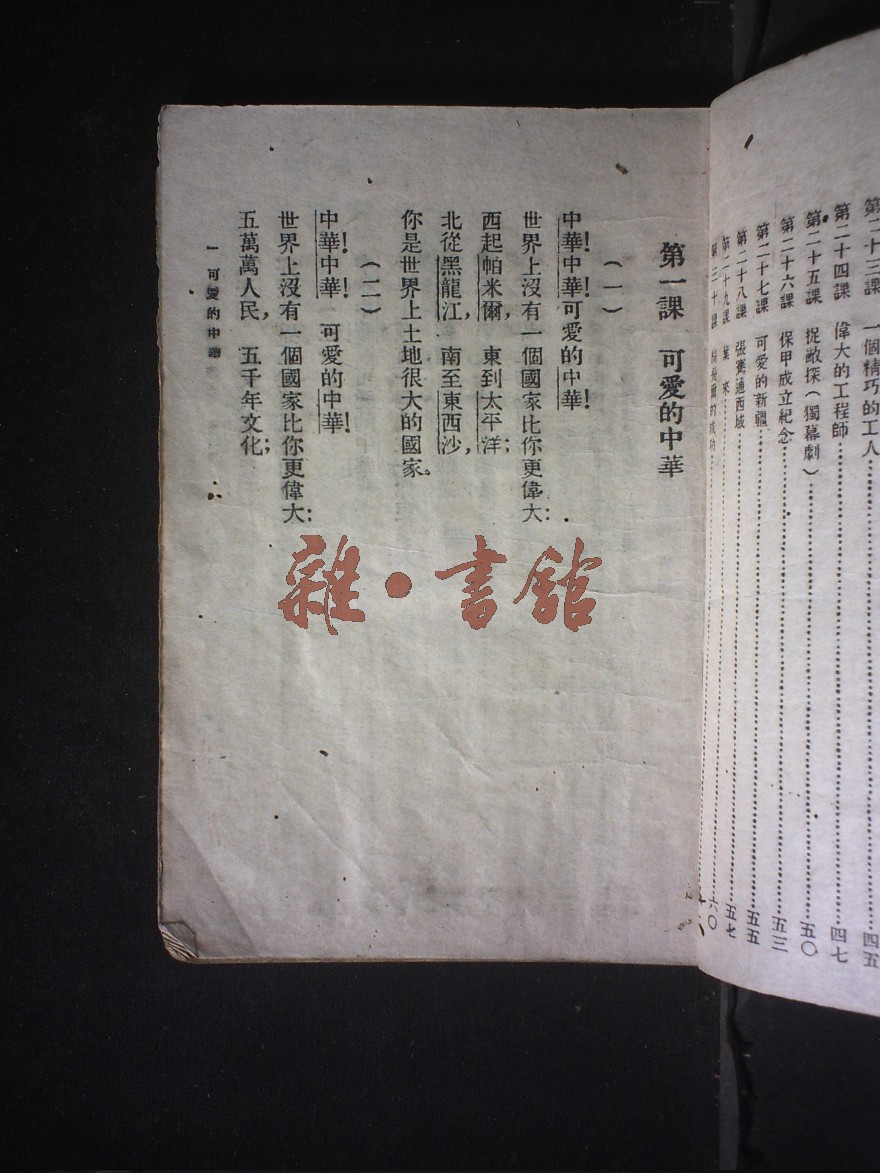 第二十三課 一個精巧的工人……四五
第二十四課 偉大的工程師……四七
第二十五課 捉敵探(獨幕劇)……五〇
第二十六課 保甲成立紀念……五三
第二十七課 可愛的新疆……五五
第二十八課 張騫通西域……五七
第二十九課
第三十課 的成功……六〇
第一課 可愛的中華
(一)
中華!中華!可愛的中華!
世界上沒有一個國家比你更偉大:
西起帕米爾,東到太平洋;
北從黑龍江,南至東西沙,
你是世界上土地很大的國家。
(二)
中華!中華!可愛的中華!
世界上沒有一個國家比你更偉大:
五萬萬人民,五千年文化;
一 可愛的中華
雜·書館